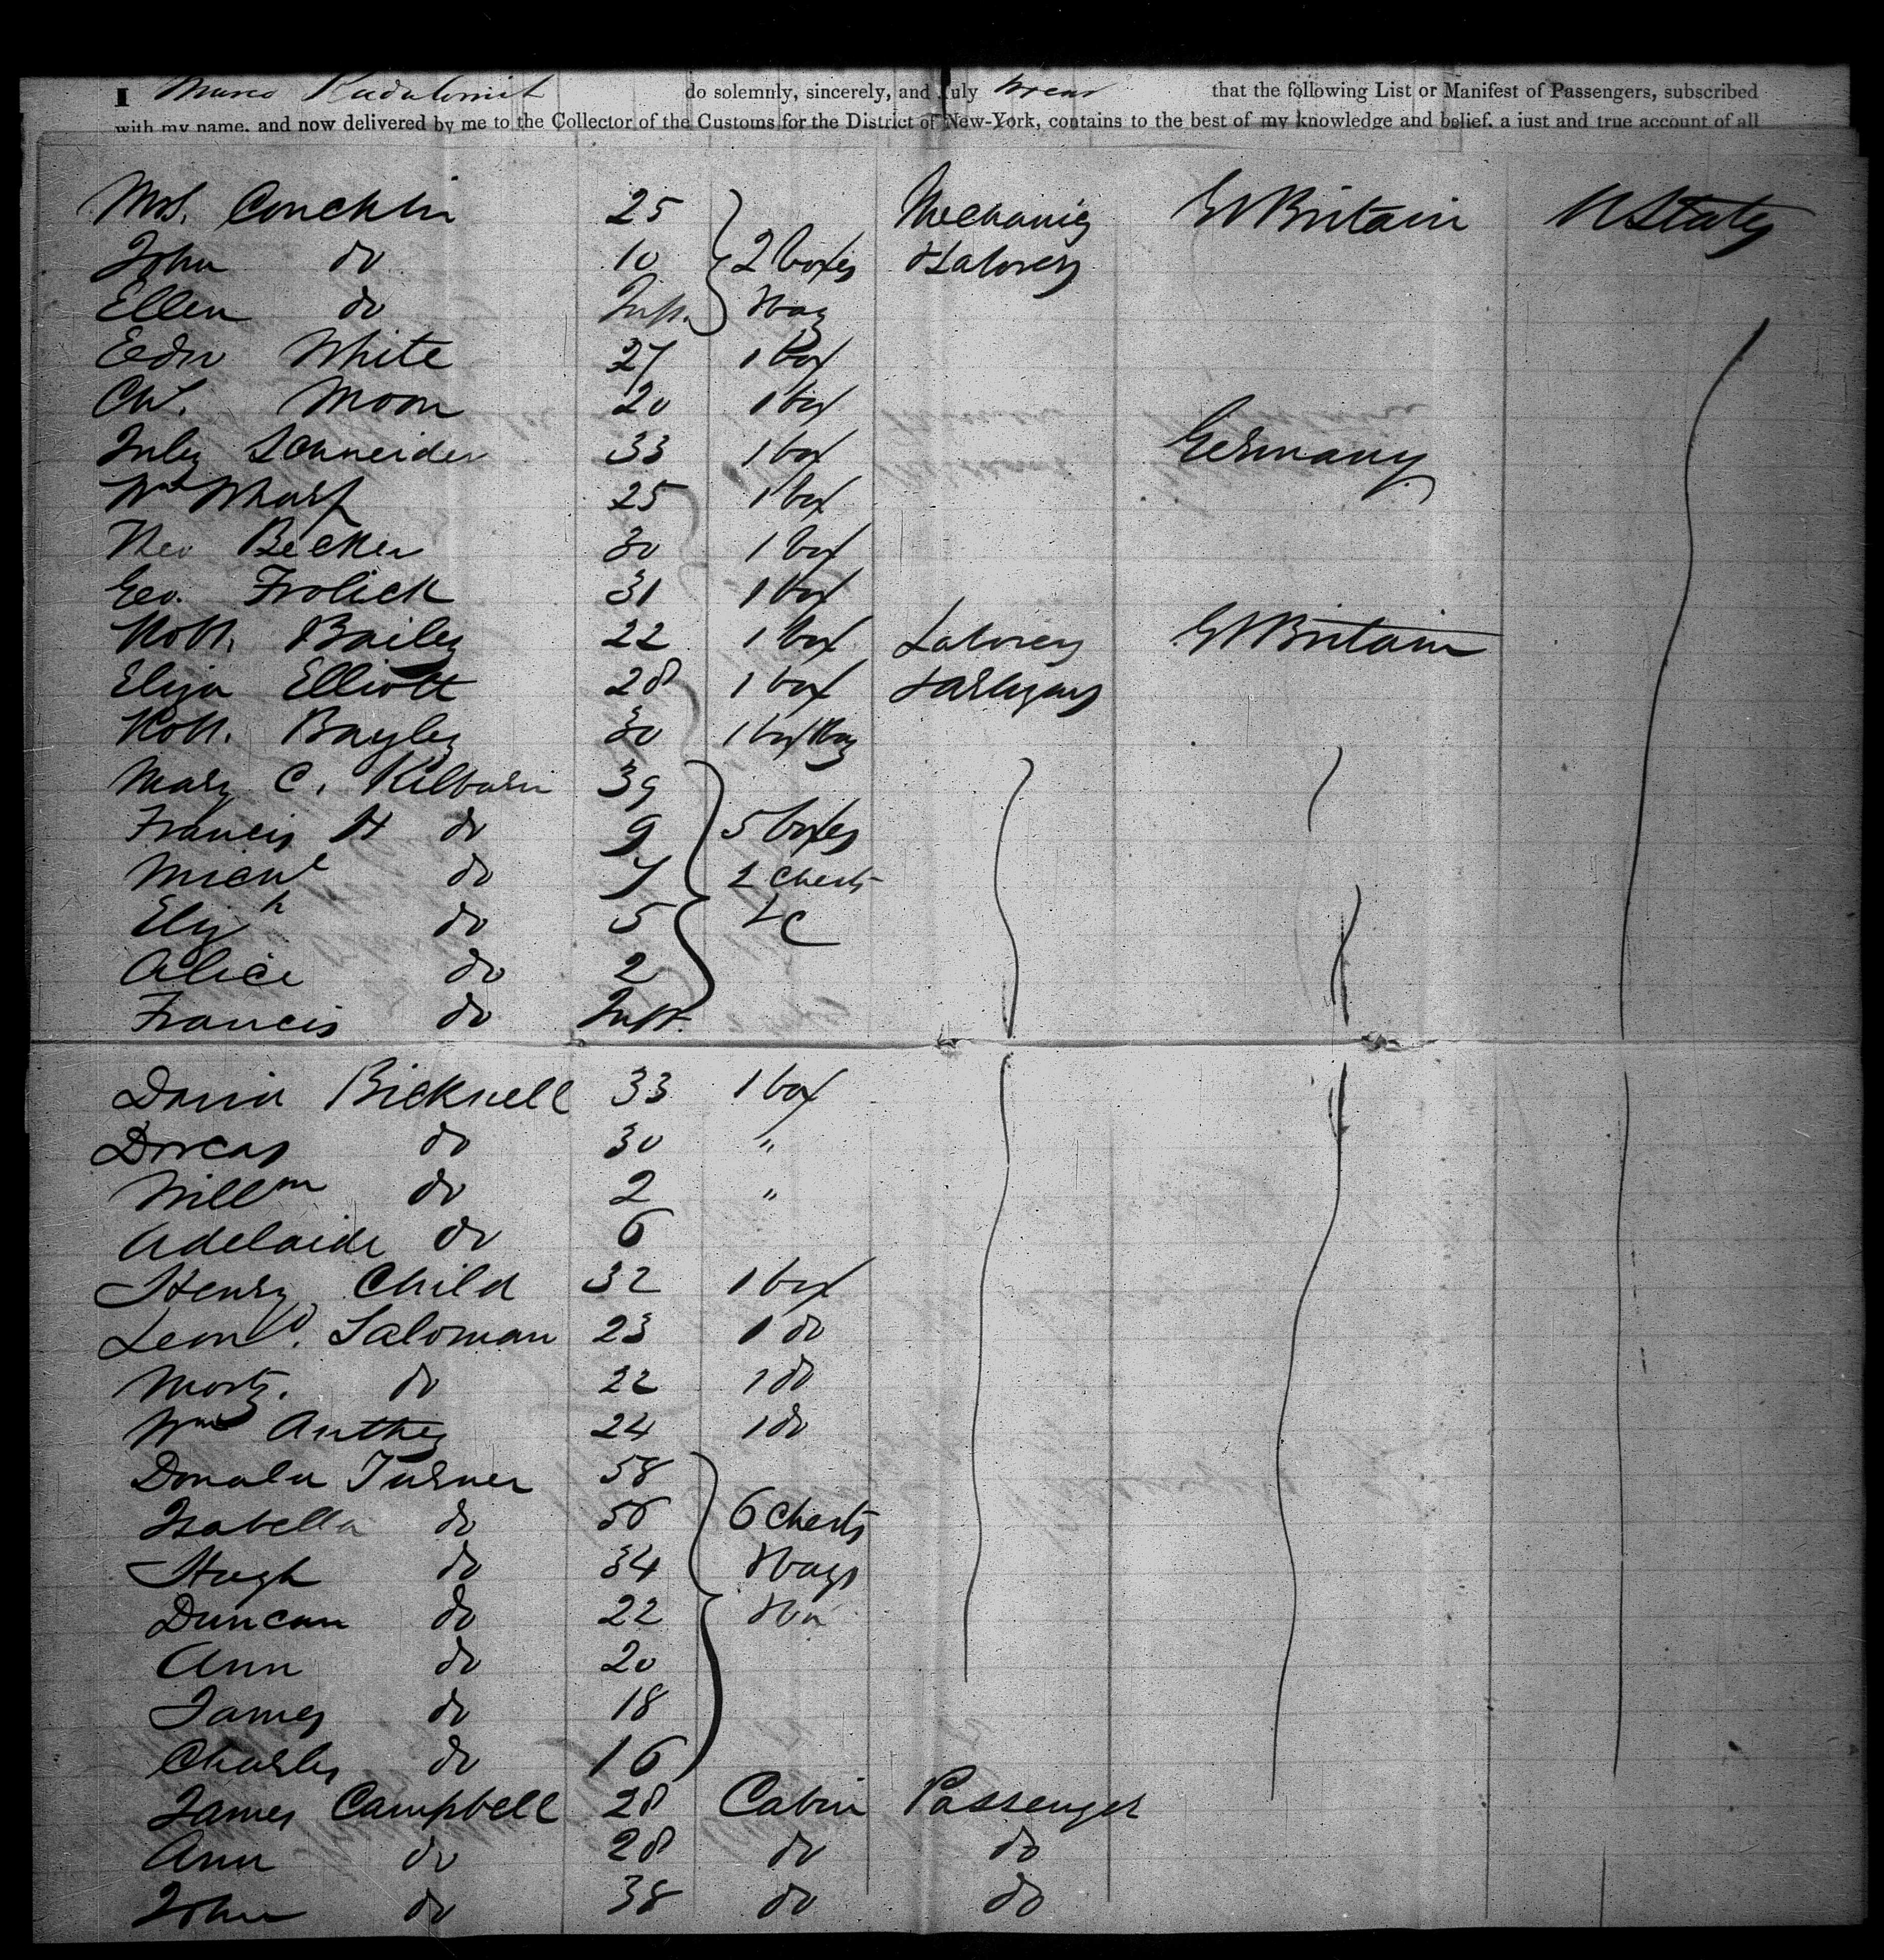 I Marco do solemnly, sincerely, and duly swear that the following List or Manifest of Passengers, subscribed
with my name, and now delivered by me to the Collector of the Customs for the District of New-York, contains to the best of my knowledge and belief, a just and true account of all
Mrs. Concklin 25 Mechanics Gt Britain U States
John do 10 2 boxes & Laborers
Ellen do Inft. & bag
Edw White 27 1 box
Chs. Moon 20 1 box
Schneider 33 1 box Germany
Wm Wharf 25 1 box
Becker 30 1 box
Geo. Frolick 31 1 box
Robt. Bailey 22 1 box Laborers Gt Britain
Eliza Elliott 28 1 box & artizans
Robt. Bayley 30 1 box & bag
Mary C. Kilburn 39
Francis H do 9 5 boxes
Michl do 7 2 chests
Elizh do 5 &c
Alice do 2
Francis do Inft.
David Bicknell 33 1 box
Dorcas do 30 "
Willm do 2 "
Adelaide do 6
Henry Child 32 1 box
Leond. Saloman 23 1 do
Mortz. do 22 1 do
Wm Anthey 24 1 do
Donald Turner 58
Isabella do 56 6 chests
Hugh do 34 & bags
Duncan do 22
Ann do 20
James do 18
Charles do 16
James Campbell 28 Cabin Passenger
Ann do 28 do do
John do 38 do do